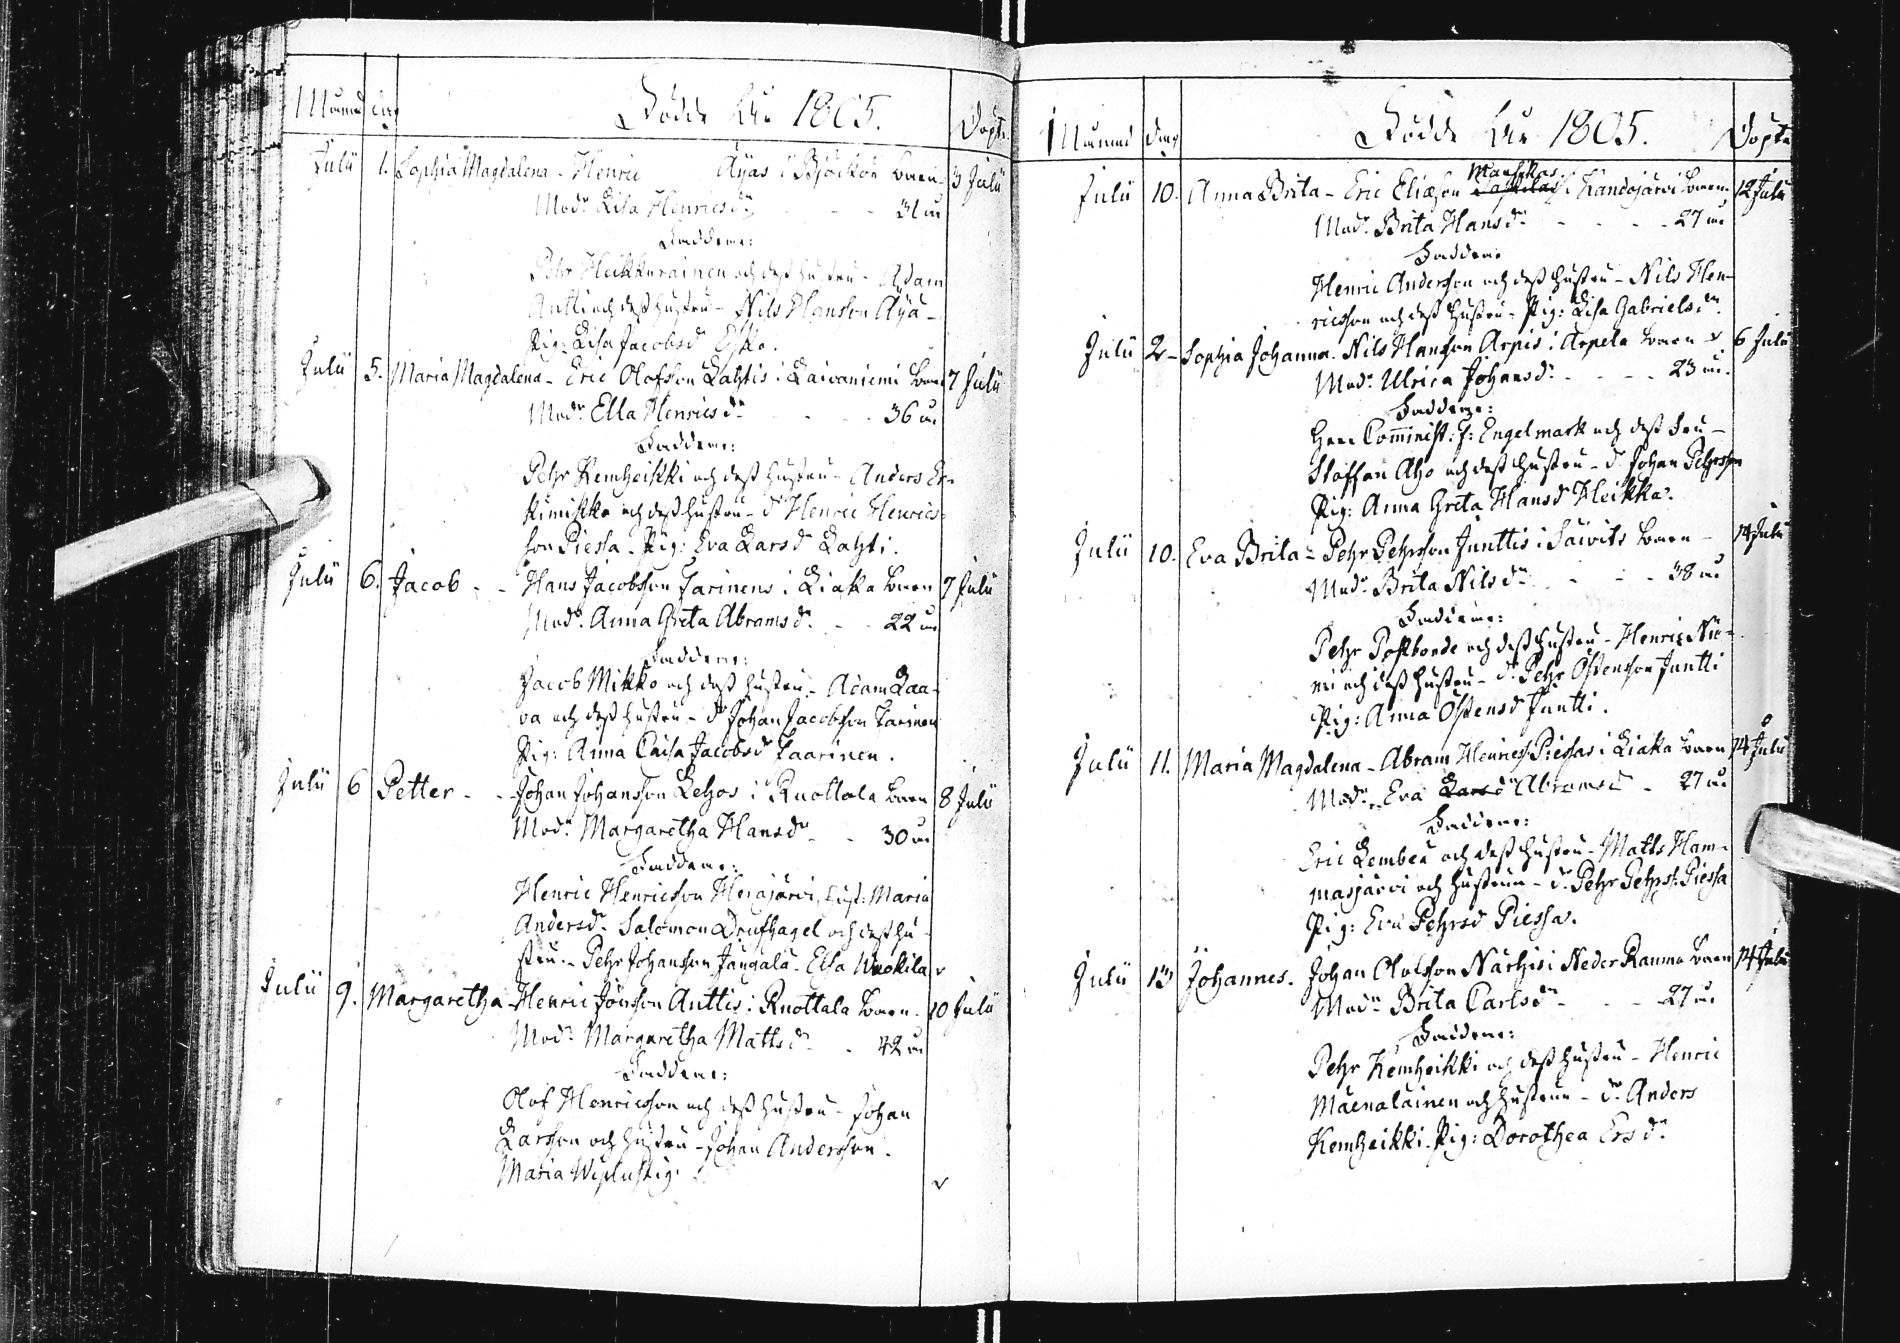 Månad dag Födde År 1805. Döpte
Julii 1. Sophia Magdalena - Henric Äijäs i Björkön barn - 3 Julii
Modr Lisa Henricsdr - - - 31 år
Faddrar:
Pehr Heikkurainen och dess hustru - Adam
Antti och dess hustru - Nils Hansson Äijä -
Pig: Lisa Jacobsd Esko.
Julii 5. Maria Magdalena - Eric Olofsson Lahtis i Laivaniemi barn 7 Julii
Modr Ella Henricsdr - - - 36 år
Faddrar:
Pehr Kemheikki och dess hustru - Anders Er-
kimikko och dess hustru - dr Henric Henrics-
son Piessa - Pig: Eva Larsd Lahti.
Julii 6. Jacob - - Hans Jacobsson Tarinens i Liaka barn 7 Julii
Modr Anna Greta Abramsdr - - 22 år
Faddrar:
Jacob Mikko och dess hustru - Adam Laa-
va och dess hustru - dr Johan Jacobsson Tarinen
Pig: Anna Caisa Jacobsd Taarinen.
Julii 6 Petter - - Johan Johansson Lehos i Ruottala barn 8 Julii
Modr Margaretha Hansdr - - 30 år
Faddrar:
Henric Henricsson Herajärvi, hust: Maria
Andersdr Salomon Drufhagel och dess hu-
stru - Pehr Johansson Jängälä - Elsa Wuokila
Julii 9. Margaretha - Henric Jönsson Anttis i Ruottala barn - 10 Julii
Modr Margaretha Mattsdr - - 42 år
Faddrar:
Olof Henricsson och dess hustru - Johan
Larsson och hustru - Johan Andersson.
Maria
Månad dag Födde År 1805. Döpte
Julii 10. Anna Brita - Eric Eliæson Mansikas i Kandojärvi barn 12 Julii
Modr Brita Hansdr - - - - 27 år
Faddrar
Henric Andersson och dess hustru - Nils Hen-
ricsson och dess hustru - Pig: Lisa Gabrielsdr
Julii 2 - Sophia Johanna. Nils Hansson Arpis i Arpela barn 6 Julii
Modr Ulrica Johansdr - - - - 23 år.
Faddrar:
Herr Comminist: J: Engelmark och dess Fru -
Staffan Aho och dess hustru - dr Johan Pehrsson
Pig: Anna Greta Hansd Heikka.
Julii 10. Eva Brita - Pehr Pehrsson Junttis i Säivits barn - 14 Julii
Modr Brita Nilsdr - - - 38 år
Faddrar:
Pehr Postbonde och dess hustru - Henric Nie-
mi och dess hustru - dr Pehr Östensson Juntti
Pig: Anna Östensd Juntti.
Julii 11. Maria Magdalena - Abram Henricss: Piessas i Liaka barn 14 Julii
Modr Eva Larsd Abramsdr - 27 år
Faddrar:
Eric Lembeä och dess hustru - Matts Ham-
masjärvi och hustrun - dr Pehr Pehrss: Piessa
Pig: Eva Pehrsd Piessa.
Julii 13 Johannes. Johan Olofsson Närhis i Neder Rauma barn 14 Julii
Modr Brita Carlsdr - - - 27 år
Faddrar:
Pehr Kemheikki och dess hustru - Henric
Mäenaläinen och hustrun - dr Anders
Kemheikki. Pig: Dorothea Ersdr